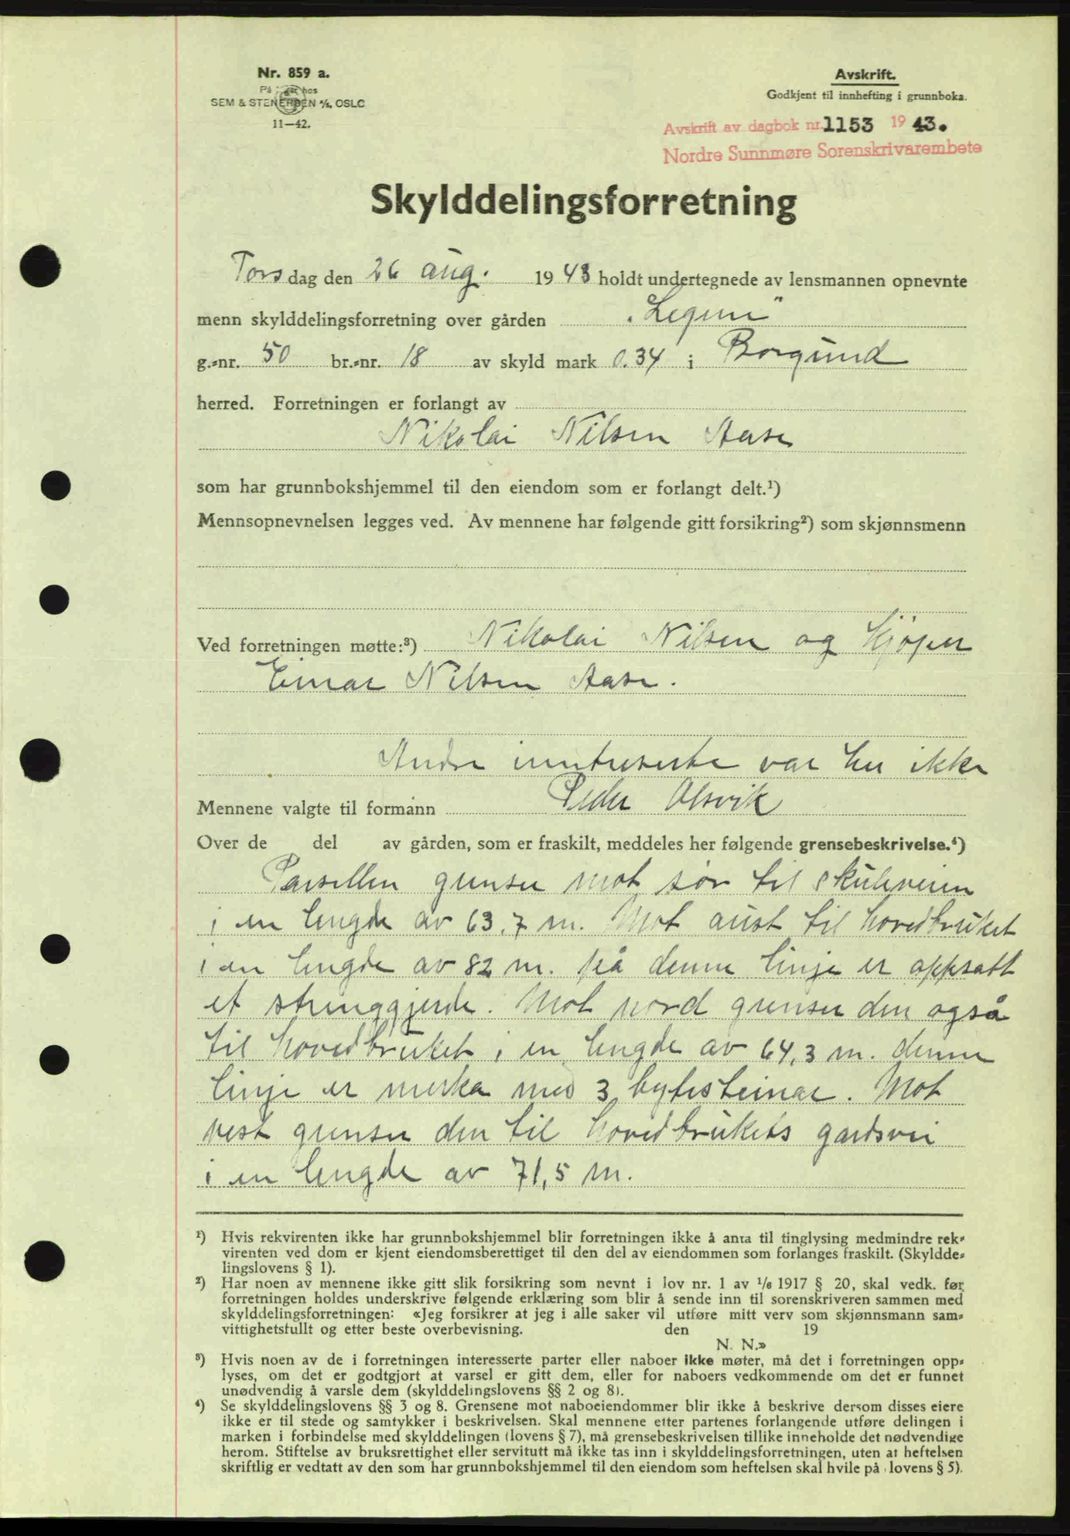 Nr. 859 a.
På lager hos
SEM & STENERSEN A/S, OSLO
11—42.
Avskrift.
Godkjent til innhefting i grunnboka.
Avskrift av dagbok nr. 1153 1943.
Nordre Sunnmøre Sorenskrivarembete
Skylddelingsforretning
Torsdag den 26 aug. 1943 holdt undertegnede av lensmannen opnevnte
menn skylddelingsforretning over gården
g.-nr. 50 br.-nr. 18 av skyld mark 0.34 i Borgund
herred. Forretningen er forlangt av
Nikolai Nilsen Aase
som har grunnbokshjemmel til den eiendom som er forlangt delt.¹)
Mennsopnevnelsen legges ved. Av mennene har følgende gitt forsikring²) som skjønnsmenn
Ved forretningen møtte:³) Nikolai Nilsen og kjøper
Einar Nilsen Aase.
Andre inntreserte var her ikke
Mennene valgte til formann Peder Alsvik
Over de del av gården, som er fraskilt, meddeles her følgende grensebeskrivelse.⁴)
Parsellen grenser mot sør til skuleveien
i en lengde av 63,7 m. Mot aust til hovedbruket
i en lengde av 82 m. På denne linje er oppsatt
et strenggjerde. Mot nord grenser den også
til hovedbruket i en lengde av 64,3 m. denne
linje er merka med 3 bytesteinar. Mot
vest grenser den til hovedbrukets gardsvei
i en lengde av 71,5 m.
¹) Hvis rekvirenten ikke har grunnbokshjemmel blir forretningen ikke å anta til tinglysing medmindre rek-
virenten ved dom er kjent eiendomsberettiget til den del av eiendommen som forlanges fraskilt. (Skyldde-
lingslovens § 1).
²) Har noen av mennene ikke gitt slik forsikring som nevnt i lov nr. 1 av 1/6 1917 § 20, skal vedk. før
forretningen holdes underskrive følgende erklæring som blir å sende inn til sorenskriveren sammen med
skylddelingsforretningen: «Jeg forsikrer at jeg i alle saker vil utføre mitt verv som skjønnsmann sam-
vittighetsfullt og etter beste overbevisning. den 19
N. N.»
³) Hvis noen av de i forretningen interesserte parter eller naboer ikke møter, må det i forretningen opp-
lyses, om det er godtgjort at varsel er gitt dem, eller for naboers vedkommende om det er funnet
unødvendig å varsle dem (skylddelingslovens §§ 2 og 8).
⁴) Se skylddelingslovens §§ 3 og 8. Grensene mot naboeiendommer blir ikke å beskrive dersom disses eiere
ikke er til stede og samtykker i beskrivelsen. Skal mennene etter partenes forlangende utføre delingen i
marken i forbindelse med skylddelingen (lovens § 7), må grensebeskrivelsen tillike inneholde det nødvendige
herom. Stiftelse av bruksrettighet eller servitutt må ikke tas inn i skylddelingsforretningen, uten at heftelsen
skriftlig er vedtatt av den som har grunnbokshjemmel til den eiendom som heftelsen skal hvile på (lovens § 5).